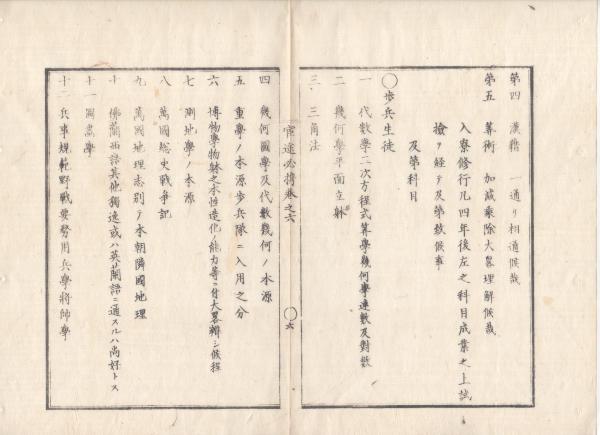 第四 漢籍 一通リ相通候哉
第五 算術 加減乗除大畧理解候哉
入寮修行凡四年後左之科目成業之上試
檢ヲ経テ及第致候事
及第科目
◯歩兵生徒
一 代数学二次方程式算学幾何学ノ連数及対数
二 幾何学平面立躰
三 三角法
官途必携巻之六
◯六
四 幾何圖学及代数幾何ノ本源
五 重学ノ本源歩兵隊ニ入用之分
六 博物学物躰之本性造化ノ能力等ニ付大畧辨シ候程
七 測地学ノ本源
八 萬國総史戦争記
九 萬國地理志別テ本朝隣國地理
十 佛蘭西語其他獨逸或ハ英蘭語ニ通スルハ尚好トス
十一 圖畫学
十二 兵事規範野戦要務用兵学将帥学